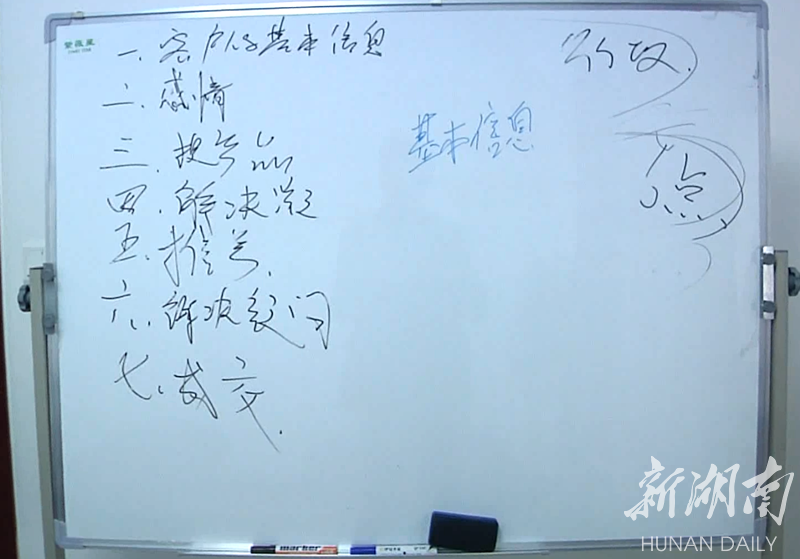 紫微星
一、客户的基本信息
二、感情
三、找产品
四、解决
五、推荐
六、解决疑问
七、成交.
基本信息
点
marker
新湖南
HUNAN DAILY